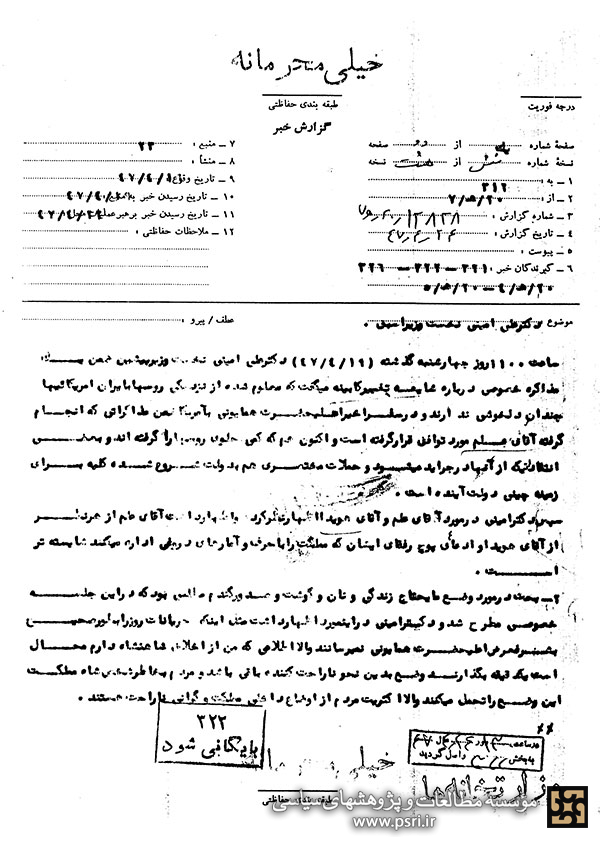 خیلی محرمانه
طبقه بندی حفاظتی
درجه فوریت
گزارش خبر
صفحه شماره یک از دو صفحه
نسخه شماره شش از هشت نسخه
۱ ــ به : ۳۱۲
۲ ــ از : ۲۰/ه۷
۳ ــ شماره گزارش :
۴ ــ تاریخ گزارش : ۴۷/۴/۲۴
۵ ــ پیوست :
۶ ــ گیرندگان خبر ۳۲۱ ــ ۳۲۲ ــ ۳۲۶
۲۰/ه۴ ــ ۲۰/ه۵
۷ ــ منبع : ۲۳
۸ ــ منشأ :
۹ ــ تاریخ وقوع :
۱۰ ــ تاریخ رسیدن خبر به منبع :
۱۱ ــ تاریخ رسیدن خبر برهبر عملیات :
۱۲ ــ ملاحظات حفاظتی :
موضوع : دکترعلی امینی نخست وزیر اسبق .
عطف / پیرو :
ساعت ۱۱۰۰ روز چهارشنبه گذشته (۴۷/۴/۱۹) دکترعلی امینی نخست وزیر پیشین ضمن یک
مذاکره خصوصی درباره شایعه تغییرکابینه میگفت که معلوم شده از نزدیکی روسها با ایران امریکائیها
چندان دلخوشی ندارند و در سفر اخیر اعلیحضرت همایونی بآمریکا ضمن مذاکراتی که انجام
گرفته آقای علم مورد توافق قرار گرفته است و اکنون هم که کمی جلوی روسها را گرفته اند و بعضی
انتقاداتیکه از آنها در جراید میشود و حملات مختصری هم بدولت شروع شده کلیه برای
زمینه چینی دولت آینده است .
سپس دکترامینی در مورد آقای علم و آقای هویدا اظهارنظر کرد و اظهار داشت آقای علم از هر نظر
از آقای هویدا و ادعای پوچ رفقای ایشان که مملکت را با حرف و آمارهای دروغی اداره میکنند شایسته تر
است .
۲ــ بحث در مورد وضع مایحتاج زندگی و نان و گوشت و عدم ورگندم مطالبی بود که در این جلسه
خصوصی مطرح شد و دکترامینی در اینمورد اظهار داشت مثل اینکه جریانات روز را بطور صحیح
بشرفعرض اعلیحضرت همایونی نمیرسانند والا اطلاعی که من از اخلاق شاهنشاه دارم محال
است یکدقیقه بگذارند وضع بدین نحو ناراحت کننده باقی باشد و مردم بخاطر شخص شاه مملکت
این وضع را تحمل میکنند والا اکثریت مردم از اوضاع داخلی مملکت و گرانی ناراحت هستند .
۳۲۲
بایگانی شود
خیلی محرمانه
طبقه بندی حفاظتی
موسسه مطالعات و پژوهشهای سیاسی
www.psri.ir